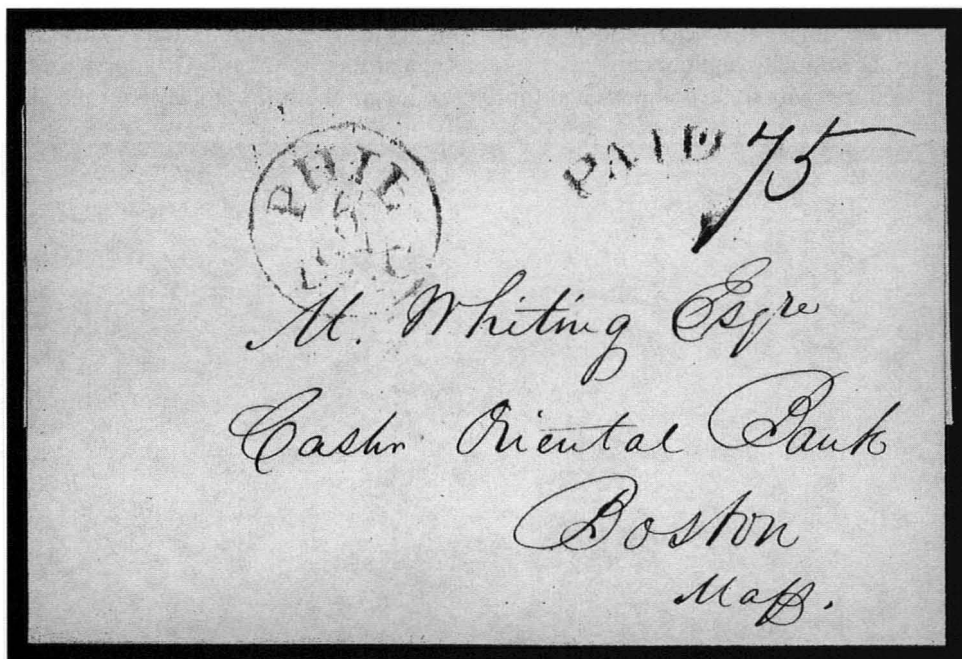 PHIL
PAID 75
M. Whiting Esqre
Cashr Oriental Bank
Boston
Mass.